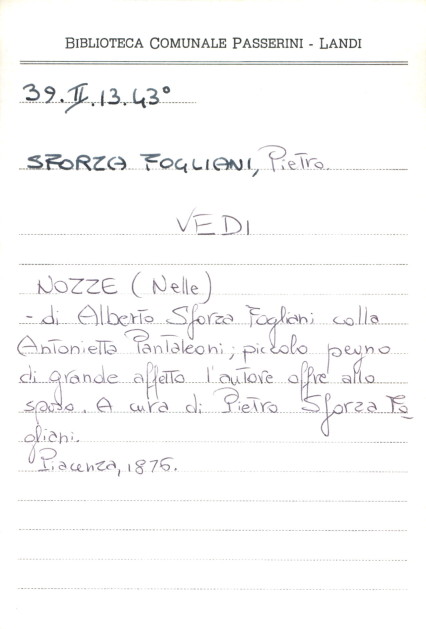 BIBLIOTECA COMUNALE PASSERINI - LANDI
39.II.13.43°
SFORZA FOGLIANI, Pietro.
VEDI
NOZZE (Nelle)
- di Alberto Sforza Fogliani colla
Antonietta Pantaleoni; piccolo pegno
di grande affetto l'autore offre allo
sposo. A cura di Pietro Sforza Fo
gliani.
Piacenza, 1876.